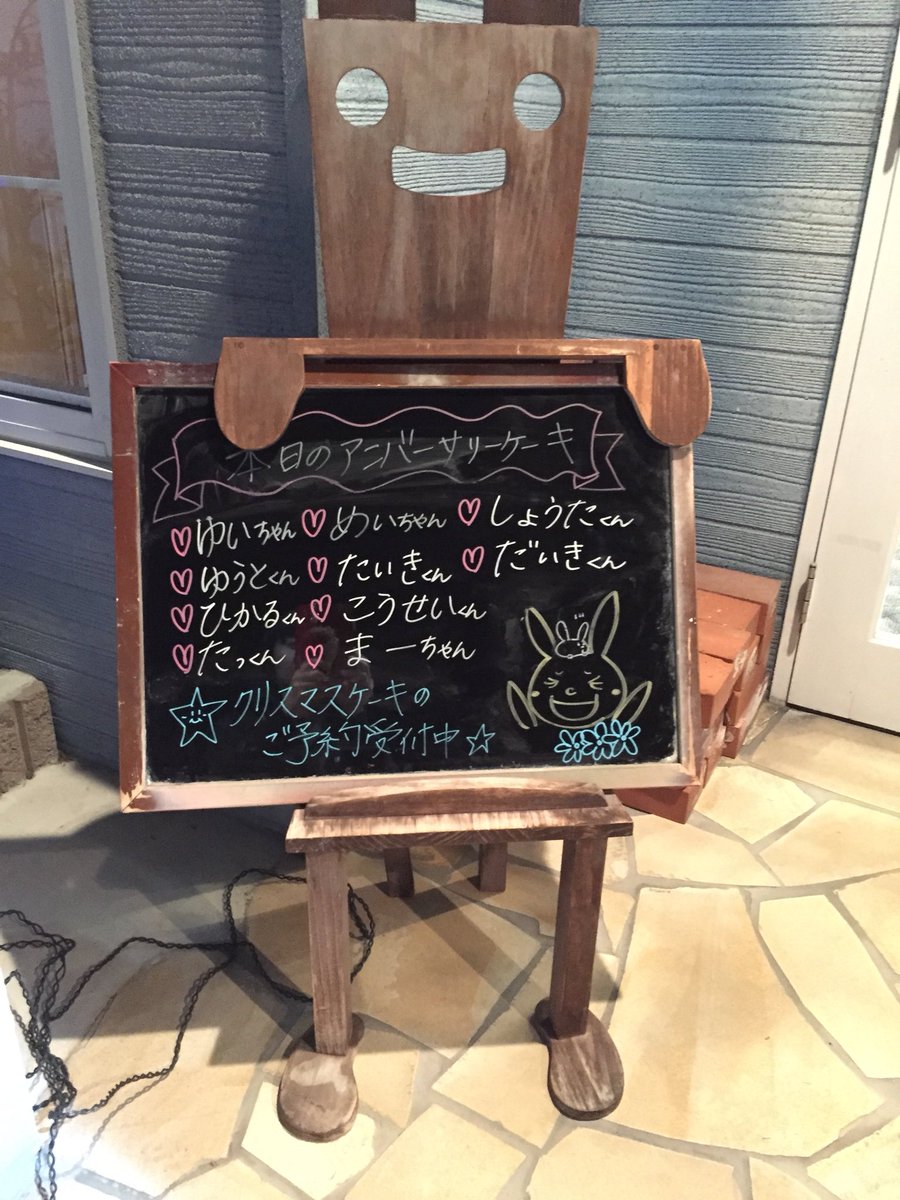 本日のアンバーサリーケーキ
♡ゆいちゃん ♡めいちゃん ♡しょうたくん
♡ゆうとくん ♡たいきくん ♡だいきくん
♡ひかるくん ♡こうせいくん
♡たっくん ♡まーちゃん
☆クリスマスケーキの
ご予約受付中☆